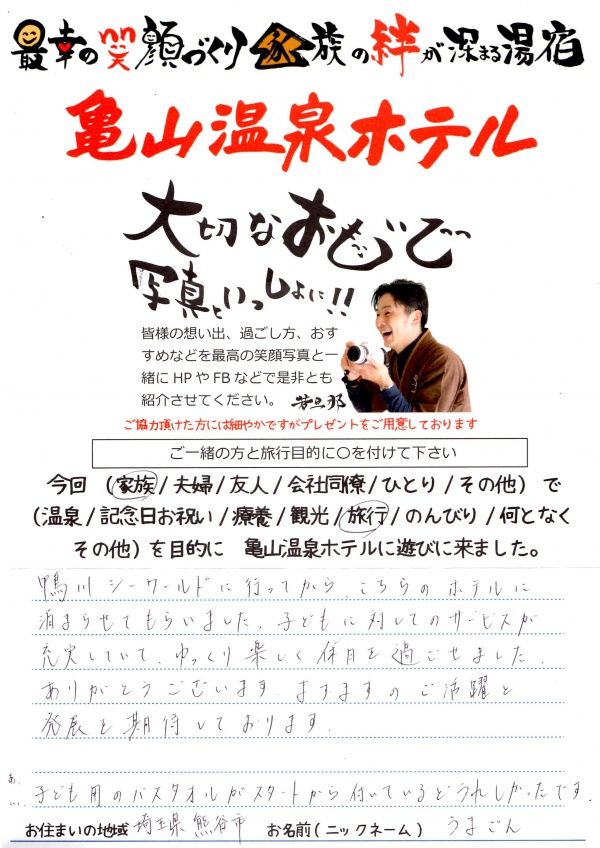 最幸の笑顔づくり 家族の絆が深まる湯宿
亀山温泉ホテル
大切なおもいで
写真といっしょに!!
皆様の想い出、過ごし方、おす
すめなどを最高の笑顔写真と一
緒に HP や FB などで是非とも
紹介させてください。 若旦那
ご協力頂けた方には細やかですがプレゼントをご用意しております
ご一緒の方と旅行目的に〇を付けて下さい
今回 (家族/夫婦/友人/会社同僚/ひとり/その他) で
(温泉/記念日お祝い/療養/観光/旅行/のんびり/何となく
その他) を目的に 亀山温泉ホテルに遊びに来ました。
鴨川シーワールドに行ってから、こちらのホテルに
泊まらせてもらいました。子どもに対してのサービスが
充実していて、ゆっくり楽しく休日を過ごせました。
ありがとうございます。ますますのご活躍と
発展を期待しております。
子ども用のバスタオルがスタートから付いているとうれしかったです。
お住まいの地域 埼玉県 熊谷市 お名前(ニックネーム) うまごん